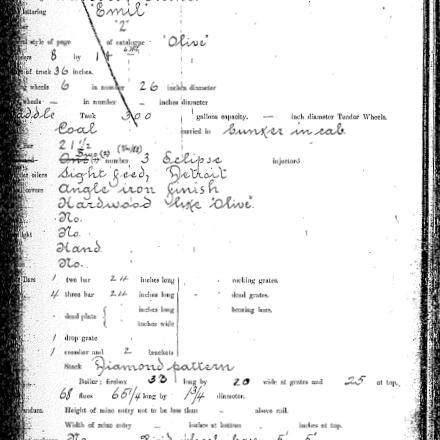 lettering "Emil"
"2"
style of page of catalogue "Olive"
8 by 14
of truck 36 inches.
wheels 6 in number 26 inches diameter
wheels - in number - inches diameter
Tank 300 gallons capacity. — inch diameter Tender Wheels.
Coal carried in bunker in cab
21 1/2
number 3 Eclipse injectors
oilers Sight feed, Detroit
covers Angle iron finish
Hardwood like "Olive".
No.
light No.
Hand
No.
Bars 1 two bar 24 inches long - rocking grates.
4 three bar 24 inches long - dead grates.
- dead plate { inches long - bearing bars.
inches wide
1 drop grate
1 crossbar and 2 brackets
Stack Diamond pattern
Boiler; firebox 33 long by 20 wide at grates and 25 at top.
68 flues 65 1/4 long by 1 3/4 diameter.
Height of mine entry not to be less than - above rail.
Width of mine entry - inches at bottom - inches at top.
No. Rigid wheel base 5' 5"